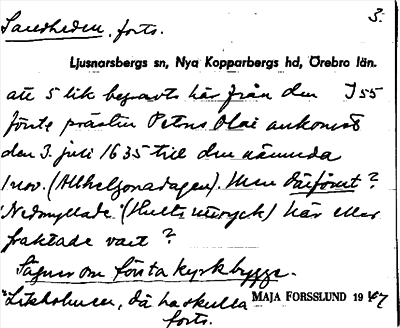 3.
Saxedheden, forts.
Ljusnarsbergs sn, Nya Kopparbergs hd, Örebro län.
att 5 lik begravts här från den I 55
förste prästen Petrus Olai ankomst
den 3. juli 1635 till den nämnda
1 nov. (Allhelgonadagen). Men därförut?
"Nedmyllade" (Hults uttryck) här eller
fraktade vart?
Sägner om första kyrkbygge.
"Likholmen, då ha skulla
MAJA FORSSLUND 1947
forts.